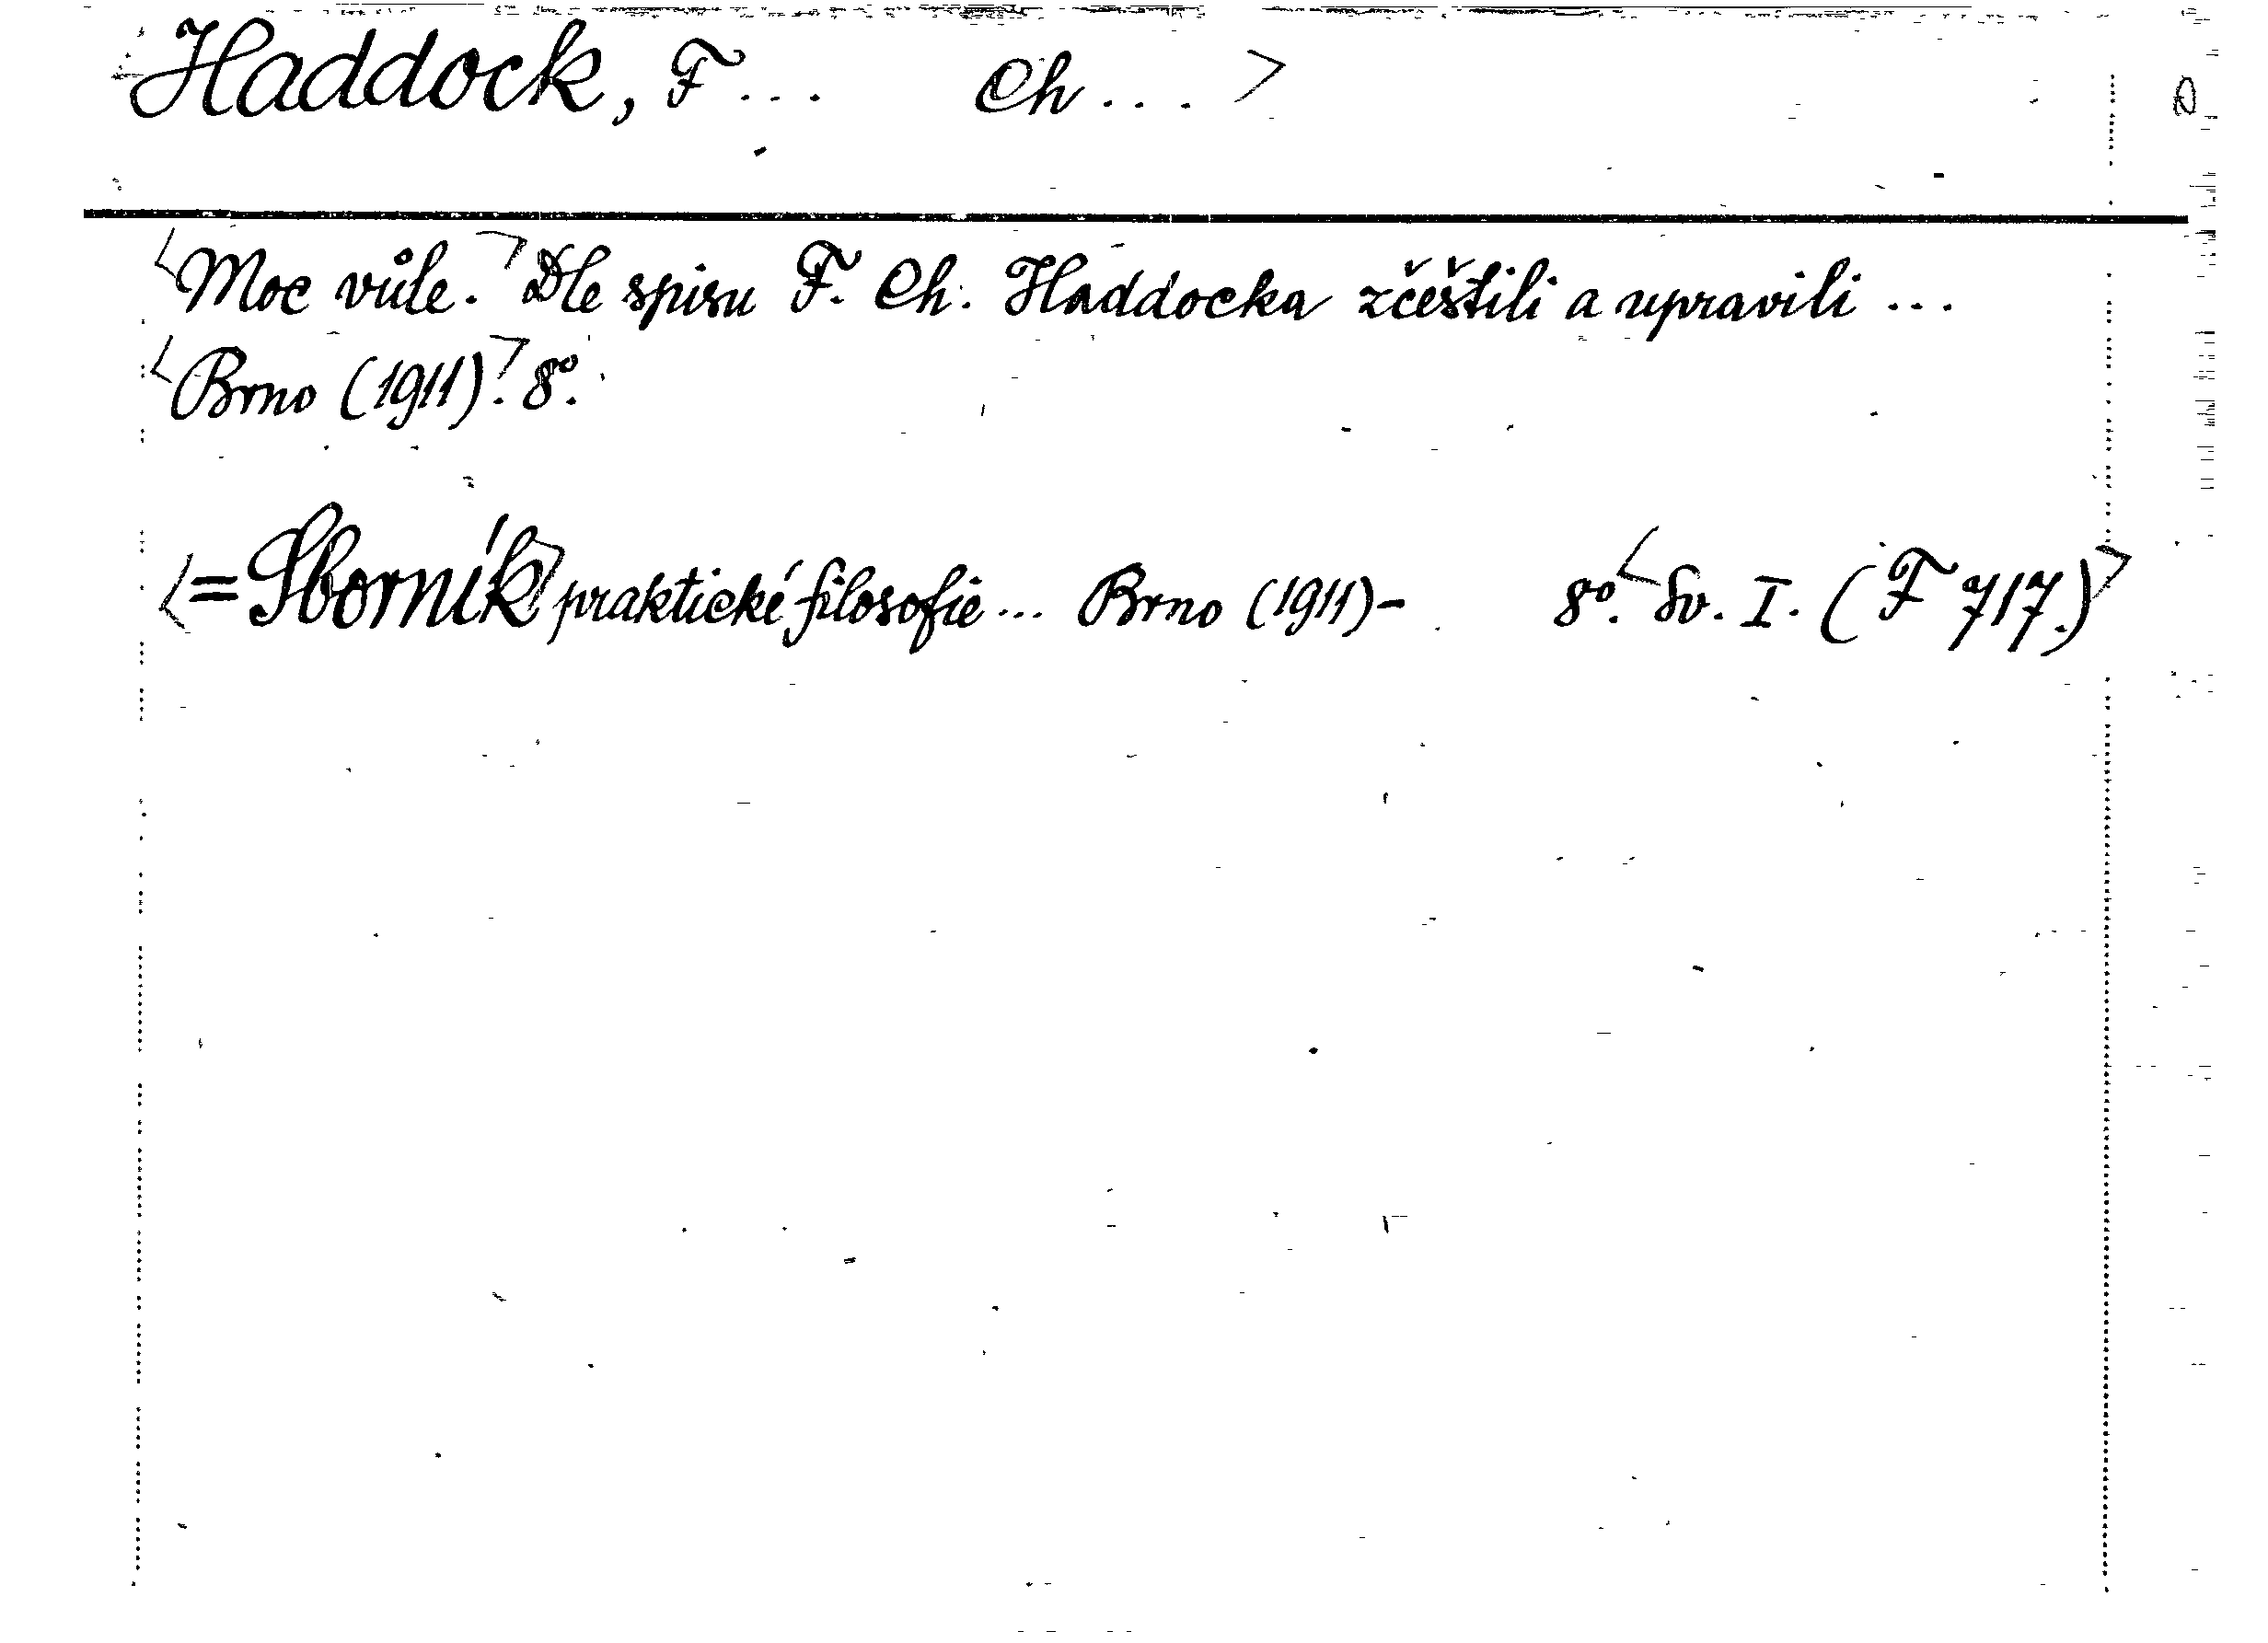 Haddock, F... Ch... >
<Moc vůle.> Dle spisu F. Ch. Haddocka zčeštili a upravili ...
<Brno (1911).> 8º.
<=Sborník> praktické filosofie... Brno (1911)- 8º. <Sv. I. (F 717.)>